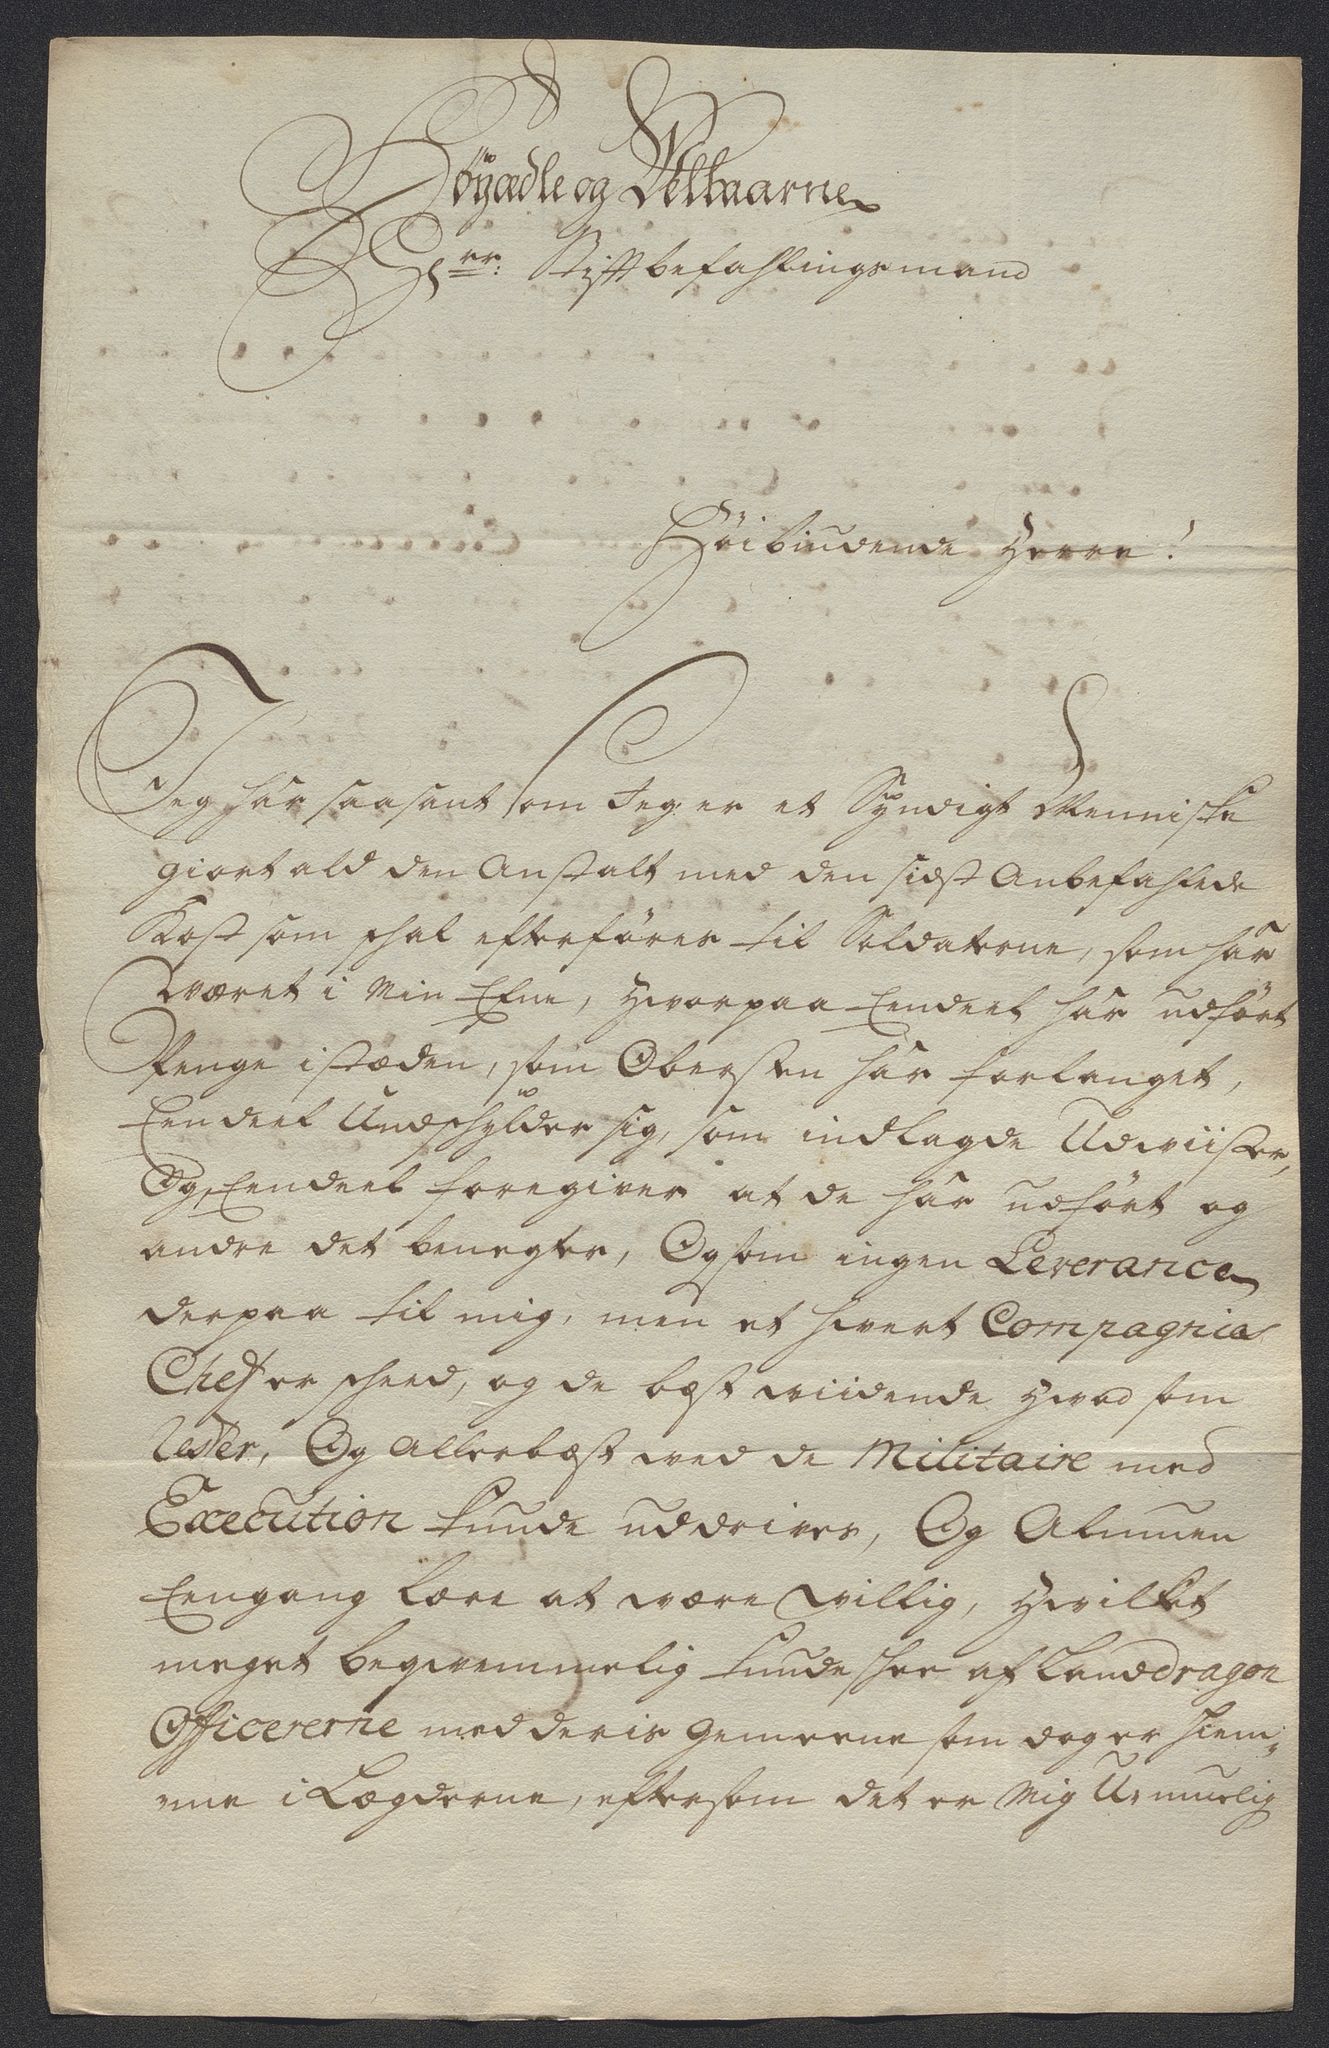 Höyædle og Velbaarne
Hrr: Stiftbefahlingsmand
Höibiudende Herre!
Jeg har saasant som Jeg er et Syndigt Menniske
giort ald den Anstalt med den sidst Anbefahlede
Kost som skal efterföres til Soldaterne, som har
været i Min Efne, Hvorpaa Eendeel har udfört
Penge i stæden, som Obersten har forlanget,
Eendeel Undskylder sig, som indlagde Udviiser,
Og Eendeel foregiver at de har udfört og
andre det benegter, Og som ingen Leverance
derpaa til mig, men et hvert Compagnies
Chef er skeed, og de best viidende Hvad som
Rester, Og Allerbest ved de Militaire med
Execution kunde uddrives, Og Almuen
Eengang lære at være villig, Hvilket
meget beqvemmelig kunde skee af Landdragon
Officererne med deris Gemeene som dog er hiem-
me i Lægderne, eftersom det er Mig Umuelig